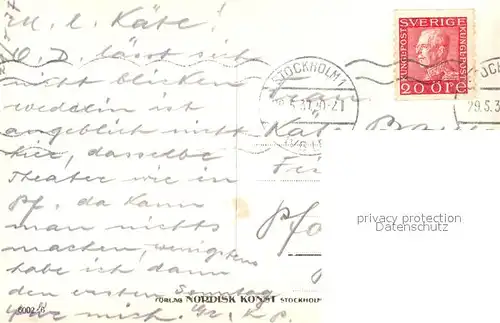 M. l. Käte!
O. D. lässt sich
nicht blicken
ist
angeblich nicht
hier, dasselbe
Theater wie in
Pf. da kann
man nichts
machen, wenigstens
habe ich dann
den ersten Sonntag
für mich. Gr. K.
SVERIGE
KUNGL·POST
KUNGL·POST
20 ÖRE
STOCKHOLM 1
29.5.3
privacy protection
Datenschutz
FÖRLAG NORDISK KONST STOCKHOLM